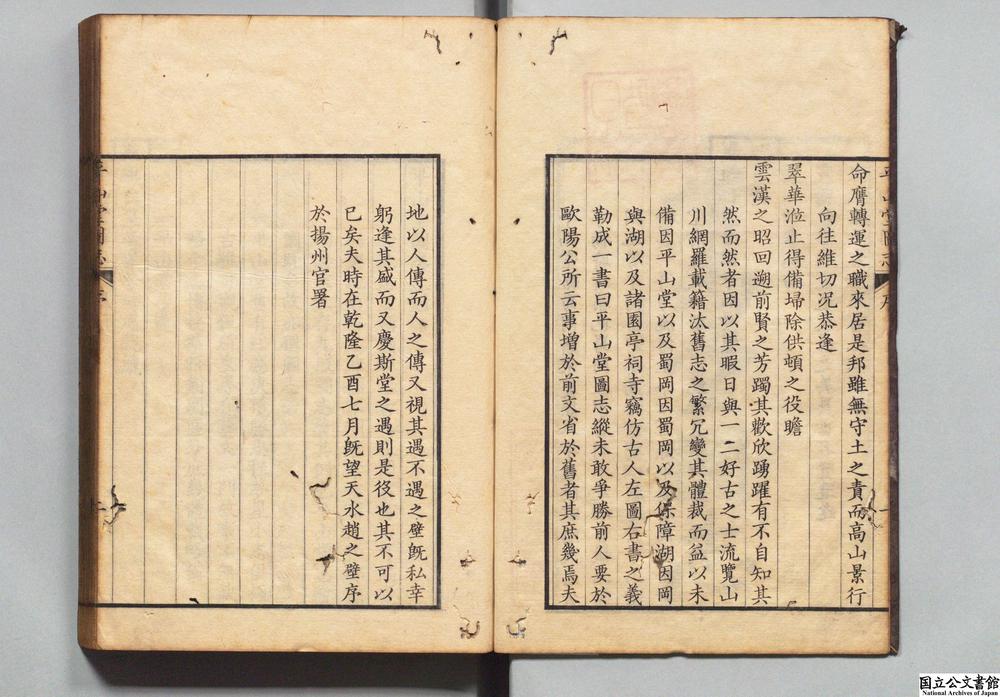 命膺轉運之職來居是邦雖無守土之責而高山景行
向往維切况恭逢
翠華涖止得備埽除供頓之役瞻
雲漢之昭回遡前賢之芳躅其歡欣踴躍有不自知其
然而然者因以其暇日與一二好古之士流覽山
川網羅載籍汰舊志之繁冗變其體裁而益以未
備因平山堂以及蜀岡因蜀岡以及保障湖因岡
與湖以及諸園亭祠寺竊仿古人左圖右書之義
勒成一書曰平山堂圖志縱未敢爭勝前人要於
歐陽公所云事增於前文省於舊者其庶幾焉夫
地以人傳而人之傳又視其遇不遇之壁旣私幸
躬逢其盛而又慶斯堂之遇則是役也其不可以
已矣夫時在乾隆乙酉七月旣望天水趙之壁序
於揚州官署
平山堂圖志
序
国立公文書館
National Archives of Japan